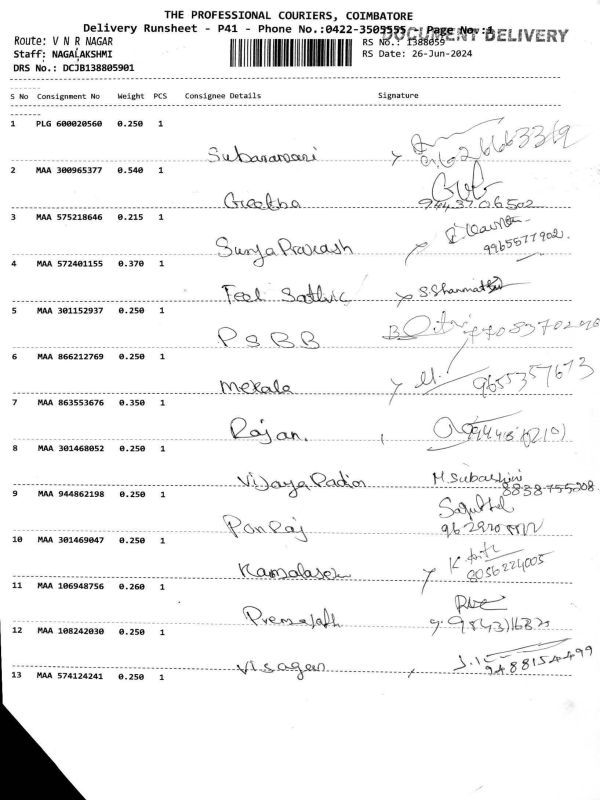 THE PROFESSIONAL COURIERS, COIMBATORE
Delivery Runsheet - P41 - Phone No.:0422-3505555 Page No.:1
DOCUMENT DELIVERY
Route: V N R NAGAR RS No.: 1388059
Staff: NAGALAKSHMI RS Date: 26-Jun-2024
DRS No.: DCJB138805901
S No Consignment No Weight PCS Consignee Details Signature
1 PLG 600020560 0.250 1
Subaramani
2 MAA 300965377 0.540 1
Geetha 9443706502
3 MAA 575218646 0.215 1
Surya Prakash 9965577902.
4 MAA 572401155 0.370 1
Feel Sathvic S.Shanmathi
5 MAA 301152937 0.250 1
P S B B
6 MAA 866212769 0.250 1
Mekala 9655357673
7 MAA 863553676 0.350 1
Rajan.
8 MAA 301468052 0.250 1
Vijaya Padion M Subashini
8838755208
9 MAA 944862198 0.250 1
PonRaj
10 MAA 301469047 0.250 1
Kamalasen 8056224005
11 MAA 106948756 0.260 1
12 MAA 108242030 0.250 1
Visagan 9488154499
13 MAA 574124241 0.250 1